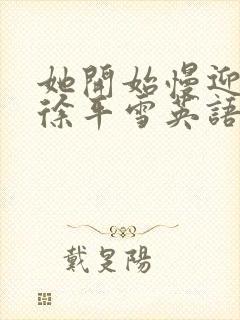 她開始慢迎
徐平雪英語
戴是陽